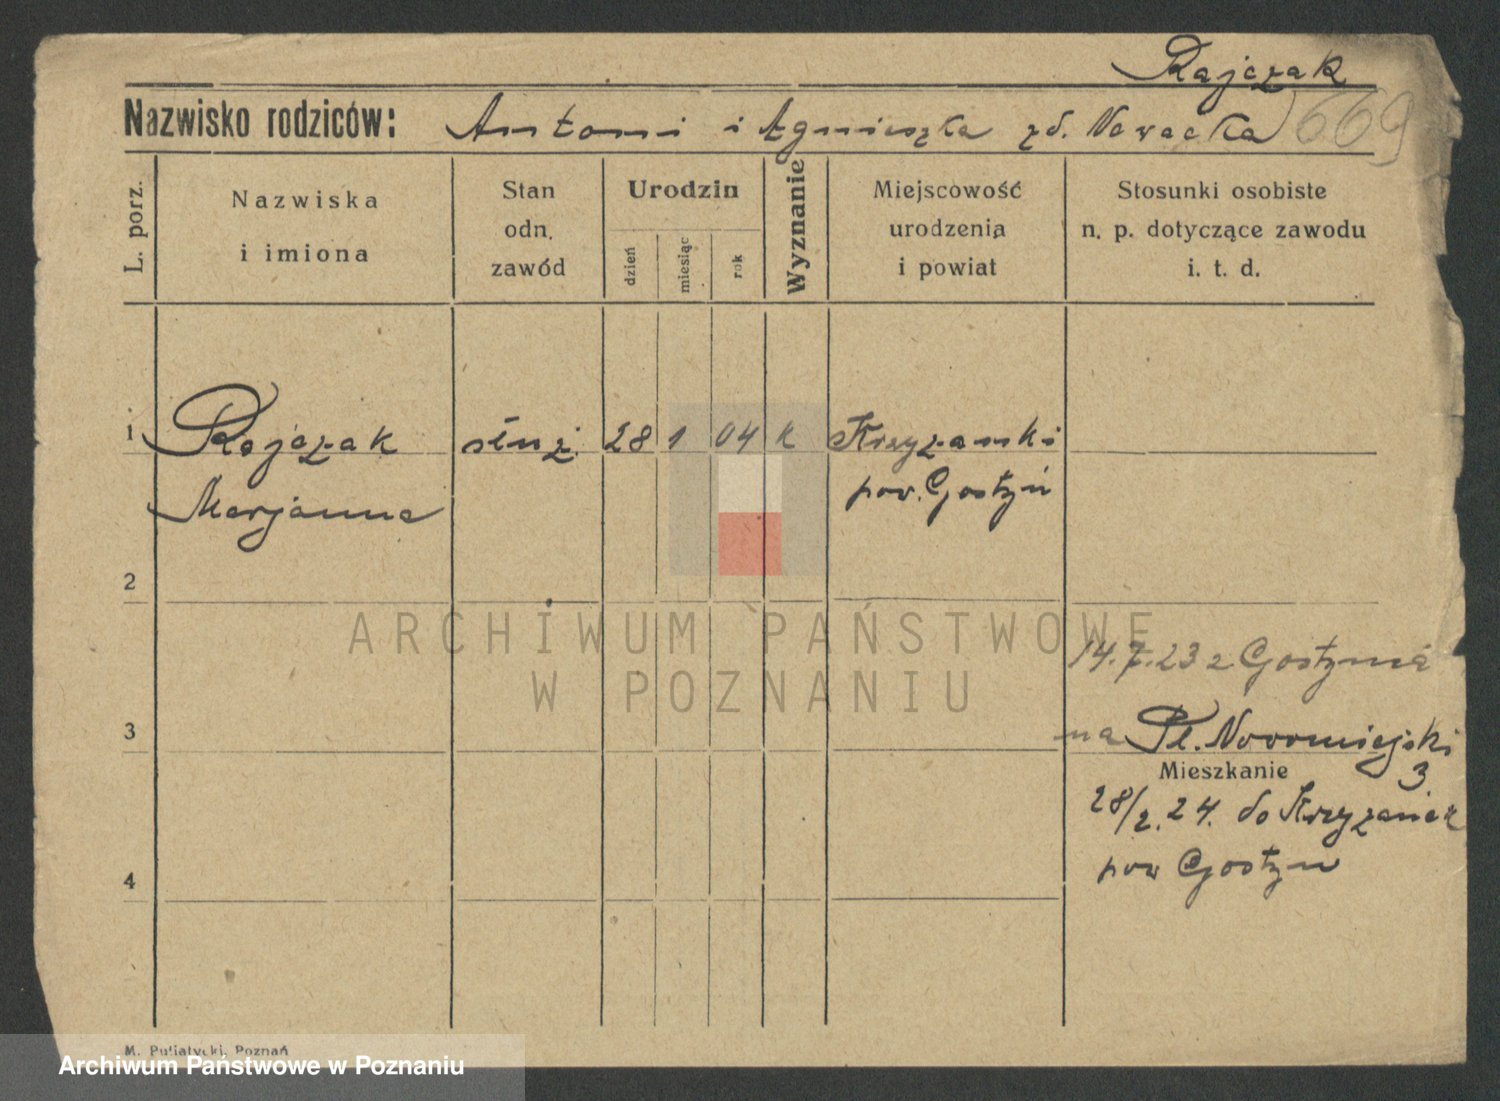 Rajczak
Nazwisko rodziców: Antoni i Agnieszka zd. Nowacka 669
L. porz.
Nazwiska
i imiona
Stan
odn.
zawód
Urodzin
dzień
miesiąc
rok
Wyznanie
Miejscowość
urodzenia
i powiat
Stosunki osobiste
n. p. dotyczące zawodu
i. t. d.
1 Rajczak służ. 28 1 04 k Krzyżanki
Marjanna pow. Gostyń
2
ARCHIWUM PAŃSTWOWE
W POZNANIU
14.7.23 z Gostynia
3 na Pl. Nowomiejski
Mieszkanie 3
28/2.24. do Krzyżanek
4 pow Gostyn
M. Putiatycki, Poznań
Archiwum Państwowe w Poznaniu